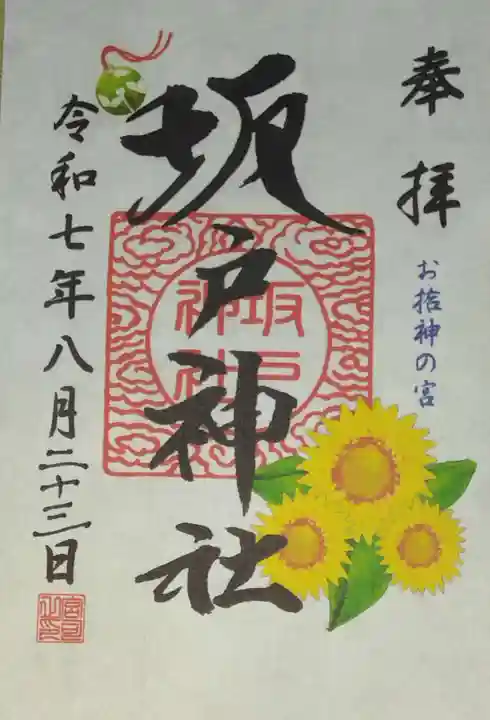 奉拝
お捨神の宮
坂戸神社
坂戸
神社
令和七年八月二十三日